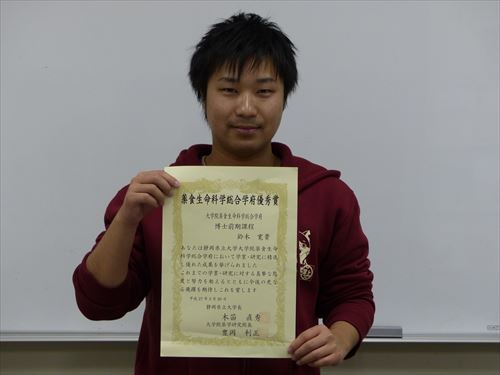 薬食生命科学総合学府優秀賞
大学院薬食生命科学総合学府
博士前期課程
鈴木 寛貴
あなたは静岡県立大学大学院薬食生命
科学総合学府において学業・研究に精進
し優れた成果を挙げられました
これまでの学業・研究に対する真摯な態
度と努力を称えるとともに今後の更な
る飛躍を期待しこれを賞します
平成27年3月20日
静岡県立大学長
木苗 直秀
大学院薬学研究院長
豊岡 利正